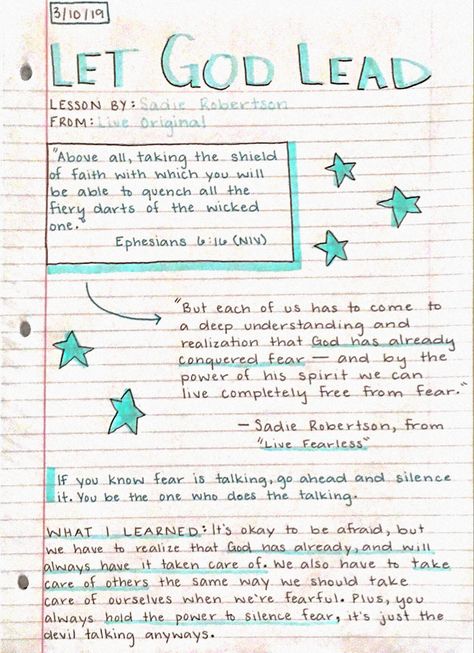 3/10/19
LET GOD LEAD
LESSON BY: Sadie Robertson
FROM: Live Original
"Above all, taking the shield
of faith with which you will
be able to quench all the
fiery darts of the wicked
one."
Ephesians 6:16 (NIV)
"But each of us has to come to
a deep understanding and
realization that God has already
conquered fear — and by the
power of his spirit we can
live completely free from fear."
— Sadie Robertson, from
"Live Fearless"
If you know fear is talking, go ahead and silence
it. You be the one who does the talking.
WHAT I LEARNED: It's okay to be afraid, but
we have to realize that God has already, and will
always have it taken care of. We also have to take
care of others the same way we should take
care of ourselves when we're fearful. Plus, you
always hold the power to silence fear, it's just the
devil talking anyways.